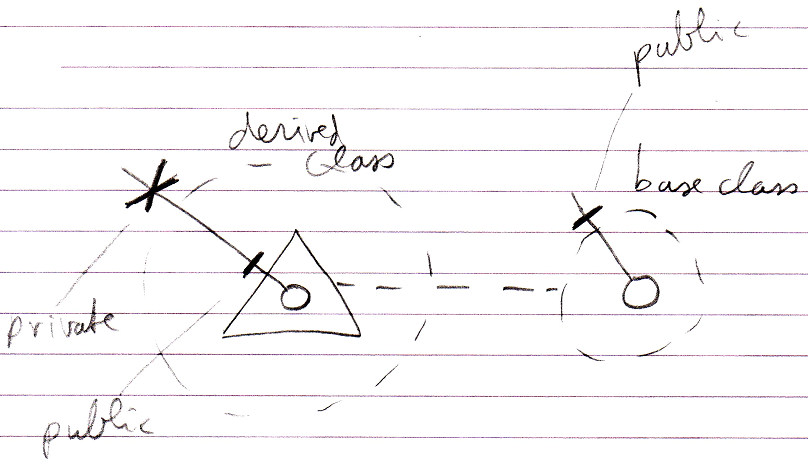 public
derived
class
base class
private
public